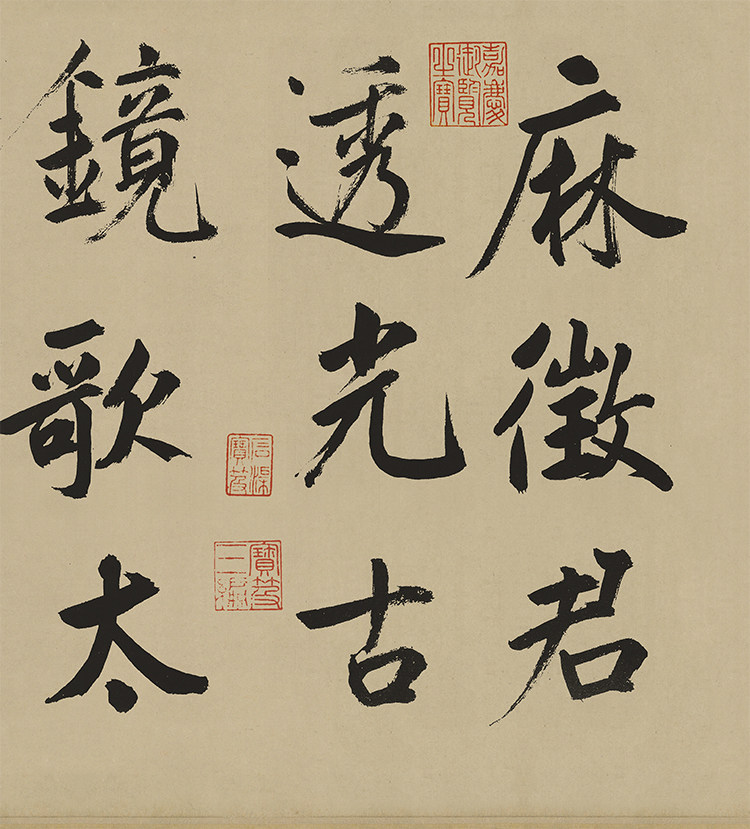 麻徵君
透光古
鏡歌太
嘉慶御覽之寶
石渠寶笈
寶笈三編